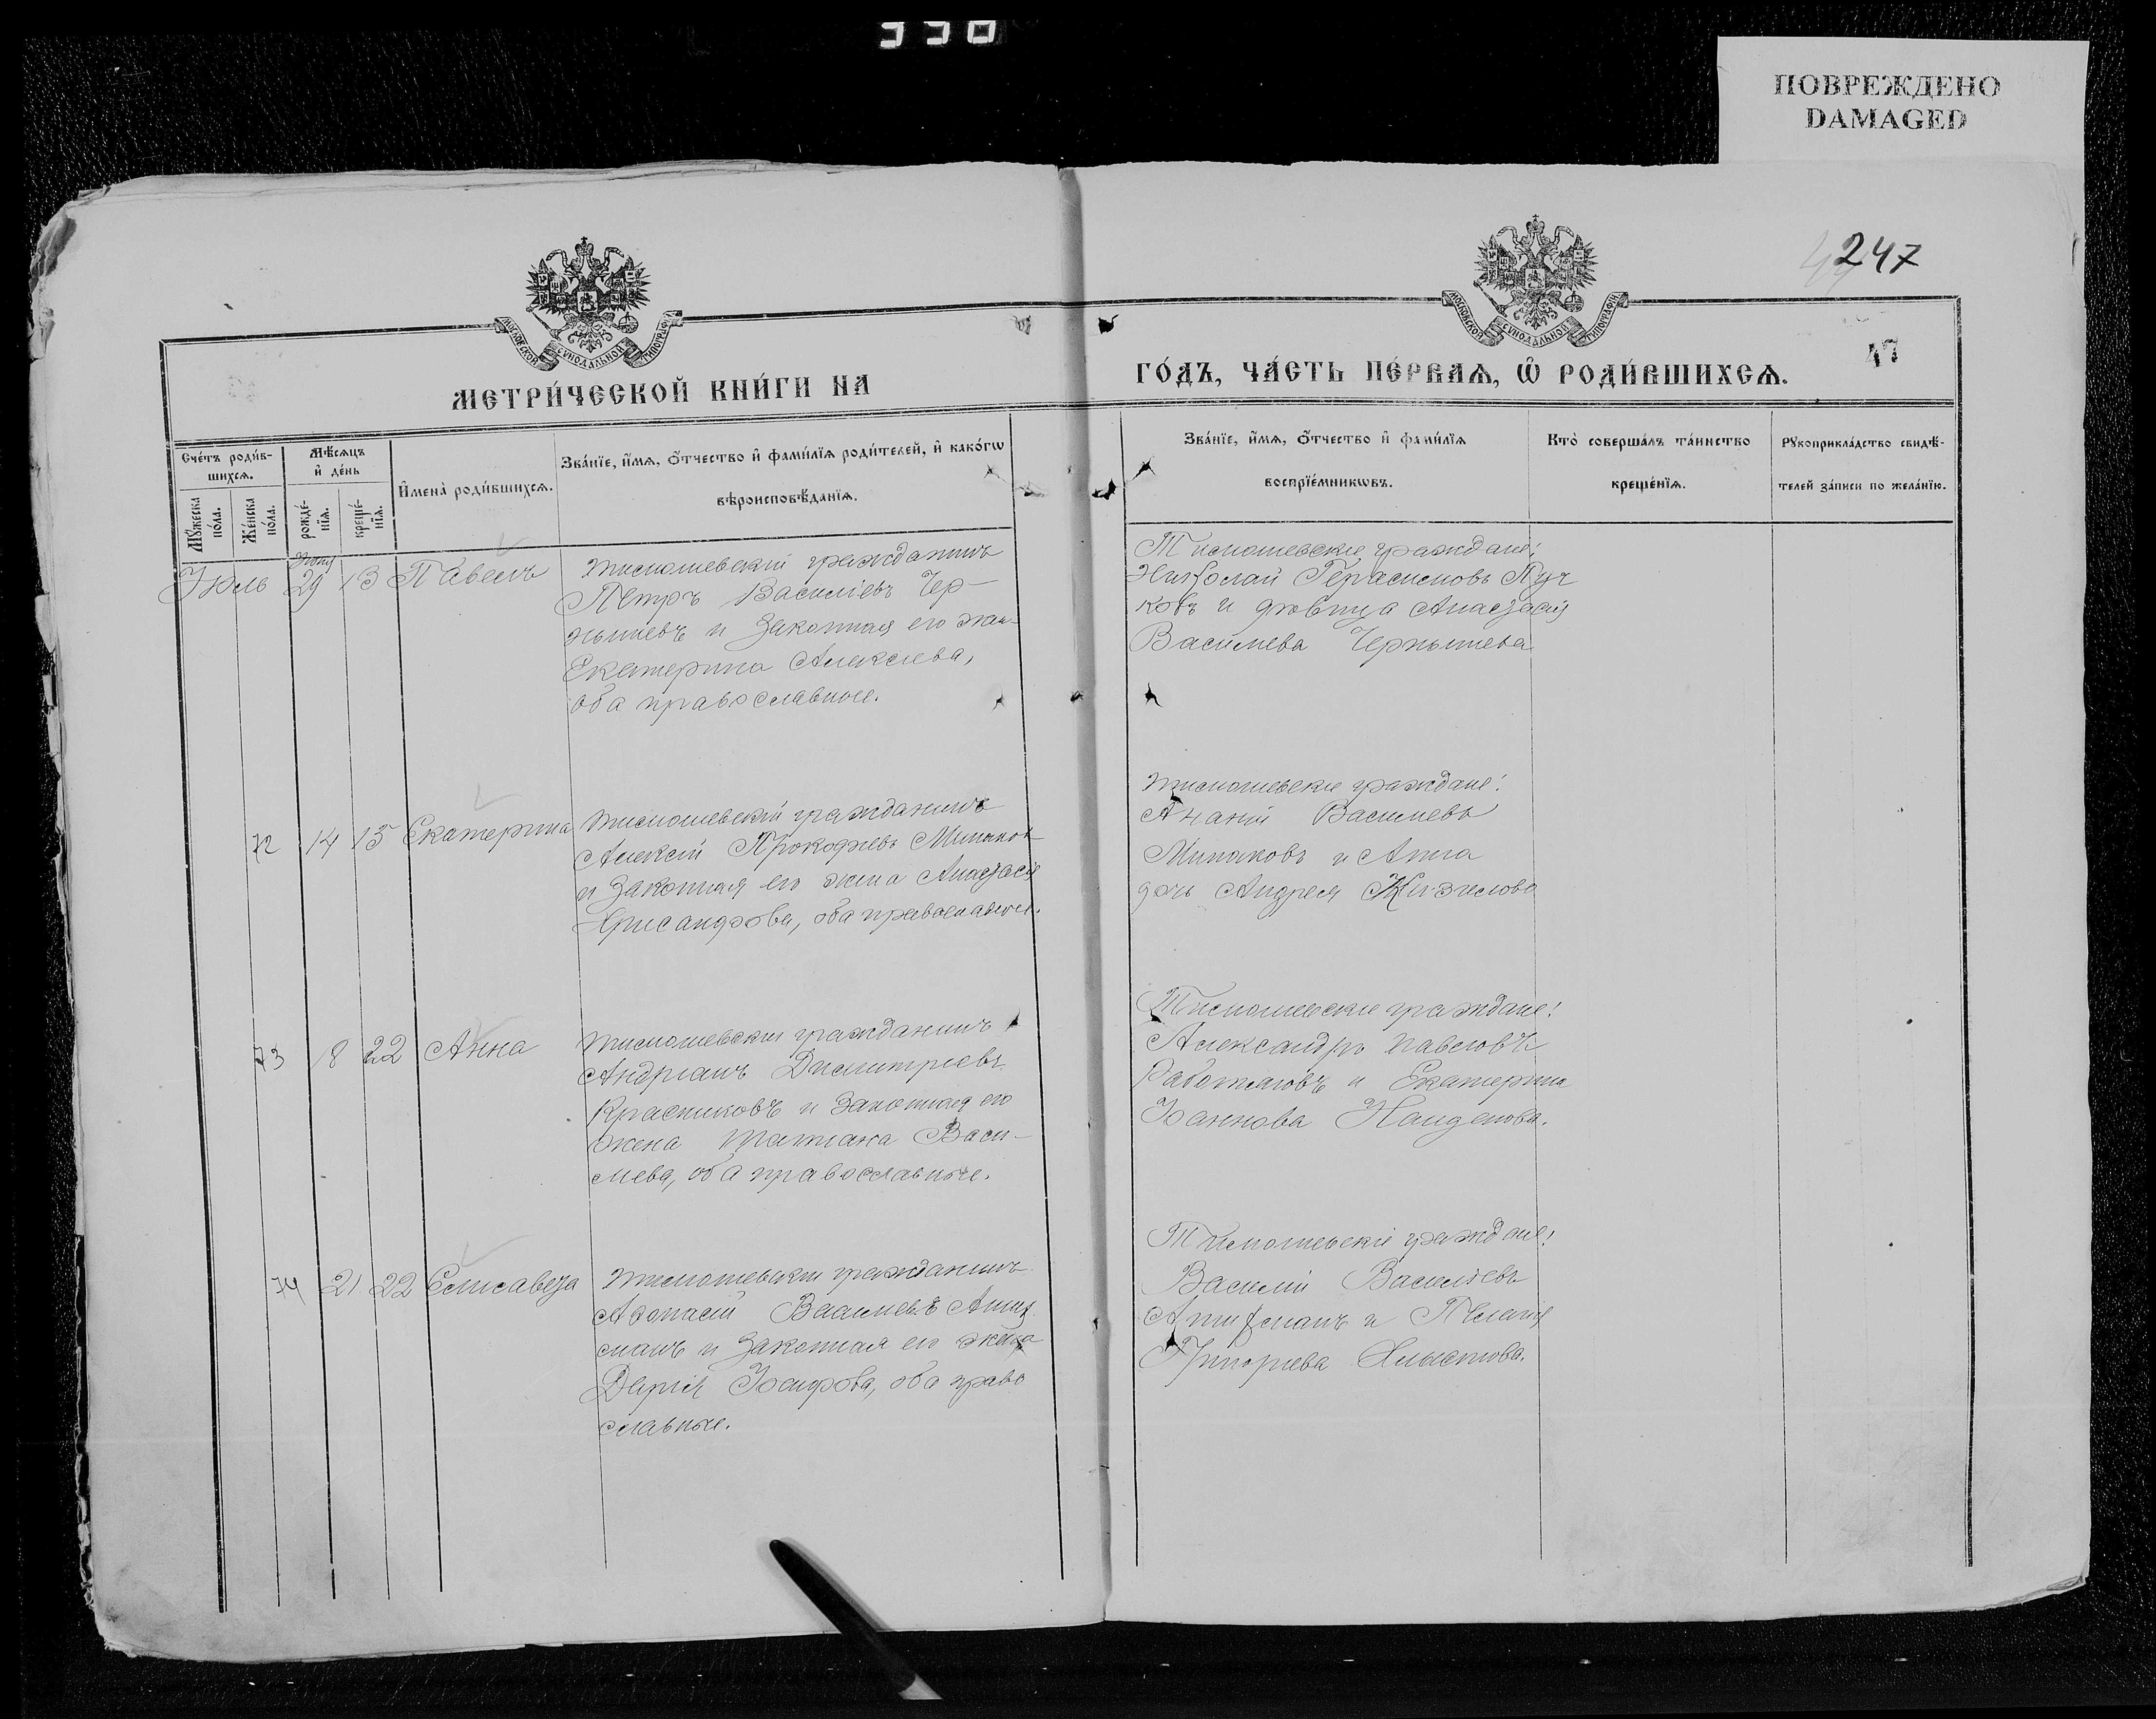 338
ПОВРЕЖДЕНО
DAMAGED
247
47
МОСКОВСКОЙ СѴНОДАЛЬНОЙ ТИПОГРАФІИ
МОСКОВСКОЙ СѴНОДАЛЬНОЙ ТИПОГРАФІИ
МЕТРИ́ЧЕСКОЙ КНИ́ГИ НА
ГО́ДЪ, ЧА́СТЬ ПЕ́РВАѦ, Ѡ҆ РОДИ́ВШИХСѦ.
Сче́тъ роди́в-
шихсѧ.
Мꙋ́жеска
по́ла.
Же́нска
по́ла.
Мѣ́сѧцъ
и҆ де́нь
рожде́-
нїѧ.
креще́-
нїѧ.
И҆мена̀ роди́вшихсѧ.
Зва́нїе, и҆́мѧ, ѻ҆́тчество и҆ фами́лїѧ роди́телей, и҆ како́гѡ
вѣроисповѣ́данїѧ.
Зва́нїе, и҆́мѧ, ѻ҆́тчество и҆ фами́лїѧ
воспрїе́мникѡвъ.
Кто̀ соверша́лъ та́инство
креще́нїѧ.
Рꙋкоприкла́дство свидѣ́-
телей за́писи по жела́нїю.
Іюль 29 13 Павелъ
тимошевскій гражданинъ
Петръ Василіевъ Чер-
нышевъ и законная его жена
Екатерина Алексіева,
оба православные.
Тимошевскіе граждане:
Николай Герасимовъ Пуч
ковъ и дѣвица Анастасія
Василіева Чернышева
72 14 15 Екатерина
тимошевскій гражданинъ
Алексій Прокофіевъ Минаковъ
и законная его жена Анастасія
Хрисанфова, оба православные.
тимошевскіе граждане:
Ананій Василіевъ
Минаковъ и Анна
дочь Андрея
73 18 22 Анна
тимошевскій гражданинъ
Андріанъ Димитріевъ
Красниковъ и законная его
жена Татіана Васи-
ліева, оба православные.
Тимошевскіе граждане:
Александръ Павловъ
и Екатерина
Іоаннова Найденова.
74 21 22 Елисавета
тимошевскій гражданинъ
Афанасій Василіевъ
и законная его жена
Дарія Іосифова, оба право
славные.
Тимошевскіе граждане:
Василій Василіевъ
и Пелагія
Григоріева Хлыстова.